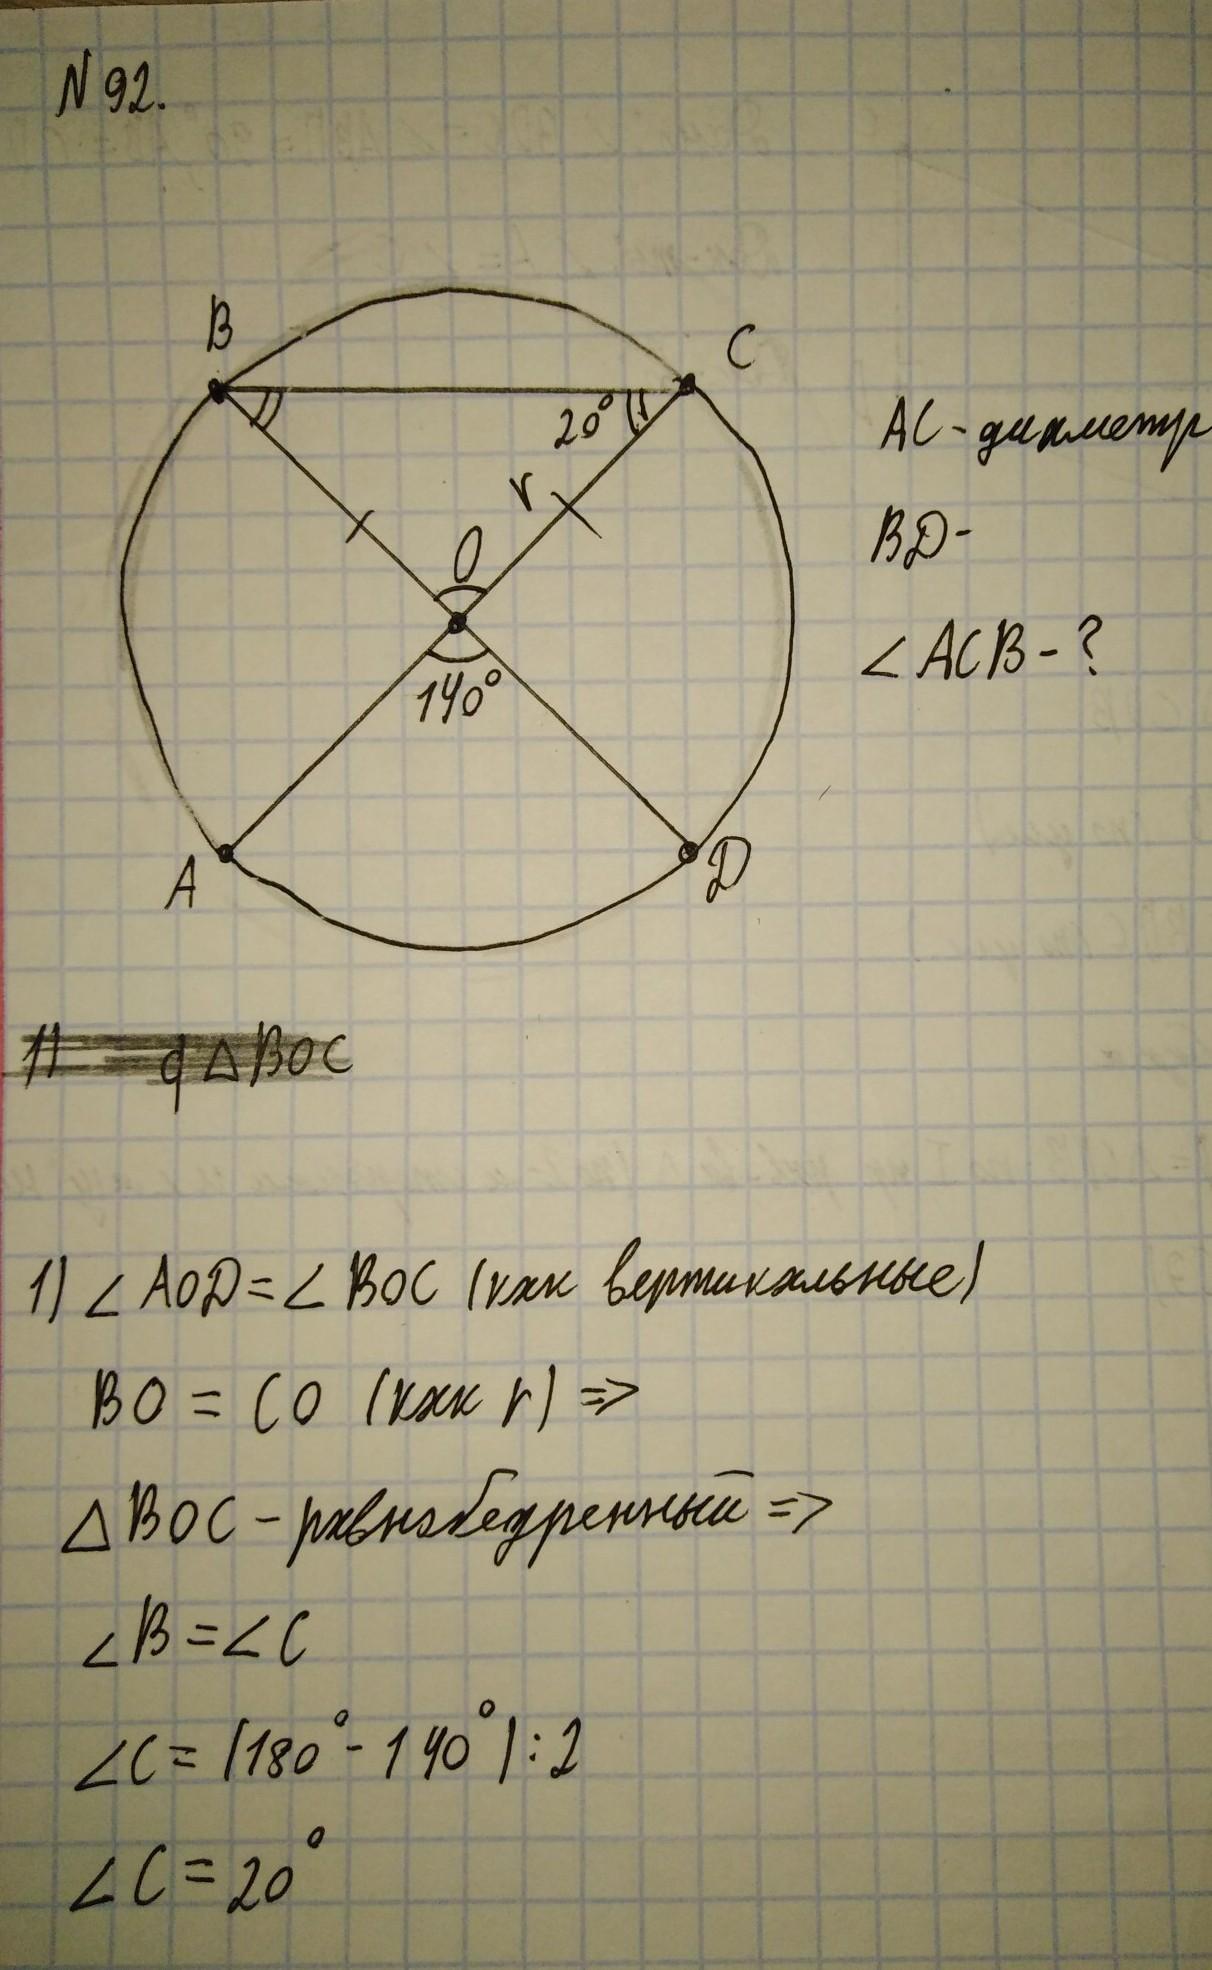 N 92.
B
C
20°
r
O
140°
A
D
AC - диаметр
BD -
∠ACB - ?
1) △BOC
1) ∠AOD = ∠BOC (как вертикальные)
BO = CO (как r) =>
△BOC - равнобедренный =>
∠B = ∠C
∠C = (180° - 140°) : 2
∠C = 20°